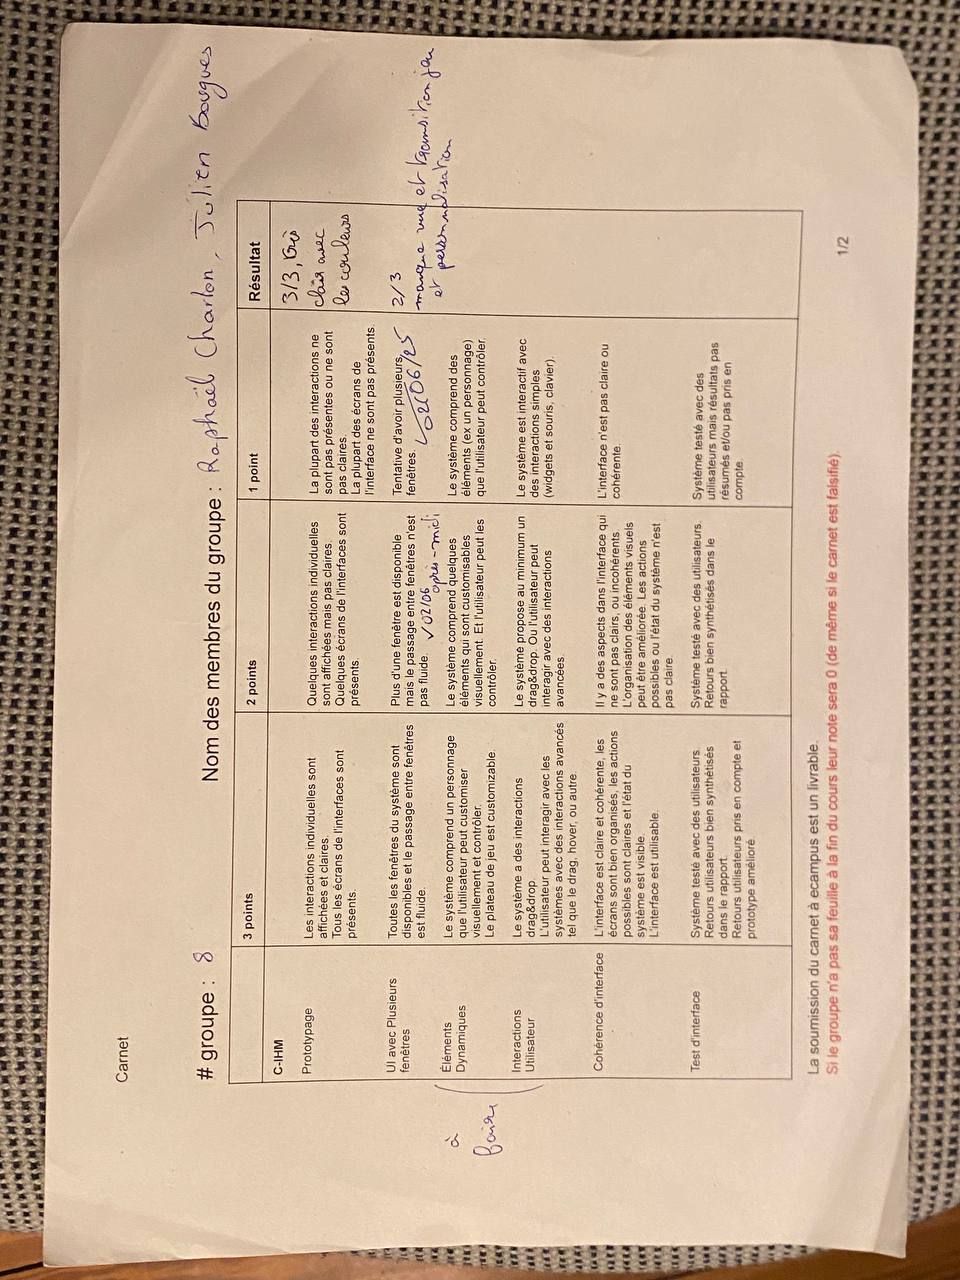 Carnet
# groupe : 8 Nom des membres du groupe : Raphaël Charlon, Julien Bougues
3 points 2 points 1 point Résultat
C-IHM
Prototypage
Les interactions individuelles sont
affichées et claires.
Tous les écrans de l'interfaces sont
présents.
Quelques interactions individuelles
sont affichées mais pas claires.
Quelques écrans de l'interfaces sont
présents.
La plupart des interactions ne
sont pas présentes ou ne sont
pas claires.
La plupart des écrans de
l'interface ne sont pas présents.
3/3, très
clair avec
les couleurs
UI avec Plusieurs
fenêtres
Toutes les fenêtres du système sont
disponibles et le passage entre fenêtres
est fluide.
Plus d'une fenêtre est disponible
mais le passage entre fenêtres n'est
pas fluide. ✓ 02/06 après-midi
Tentative d'avoir plusieurs
fenêtres. 02/06/25
2/3
manque vue et transition jeu
et personnalisation
à
faire
Éléments
Dynamiques
Le système comprend un personnage
que l'utilisateur peut customiser
visuellement et contrôler.
Le plateau de jeu est customizable.
Le système comprend quelques
éléments qui sont customisables
visuellement. Et l'utilisateur peut les
contrôler.
Le système comprend des
éléments (ex un personnage)
que l'utilisateur peut contrôler.
Interactions
Utilisateur
Le système a des interactions
drag&drop
L'utilisateur peut interagir avec les
systèmes avec des interactions avancés
tel que le drag, hover, ou autre.
Le système propose au minimum un
drag&drop. Ou l'utilisateur peut
interagir avec des interactions
avancées.
Le système est interactif avec
des interactions simples
(widgets et souris, clavier).
Cohérence d'interface
L'interface est claire et cohérente, les
écrans sont bien organisés, les actions
possibles sont claires et l'état du
système est visible.
L'interface est utilisable.
Il y a des aspects dans l'interface qui
ne sont pas clairs, ou incohérents.
L'organisation des éléments visuels
peut être améliorée. Les actions
possibles ou l'état du système n'est
pas claire.
L'interface n'est pas claire ou
cohérente.
Test d'interface
Système testé avec des utilisateurs
Retours utilisateurs bien synthétisés
dans le rapport.
Retours utilisateurs pris en compte et
prototype amélioré.
Système testé avec des utilisateurs.
Retours bien synthétisés dans le
rapport.
Système testé avec des
utilisateurs mais résultats pas
résumés et/ou pas pris en
compte
La soumission du carnet à ecampus est un livrable.
Si le groupe n'a pas sa feuille à la fin du cours leur note sera 0 (de même si le carnet est falsifié).
1/2